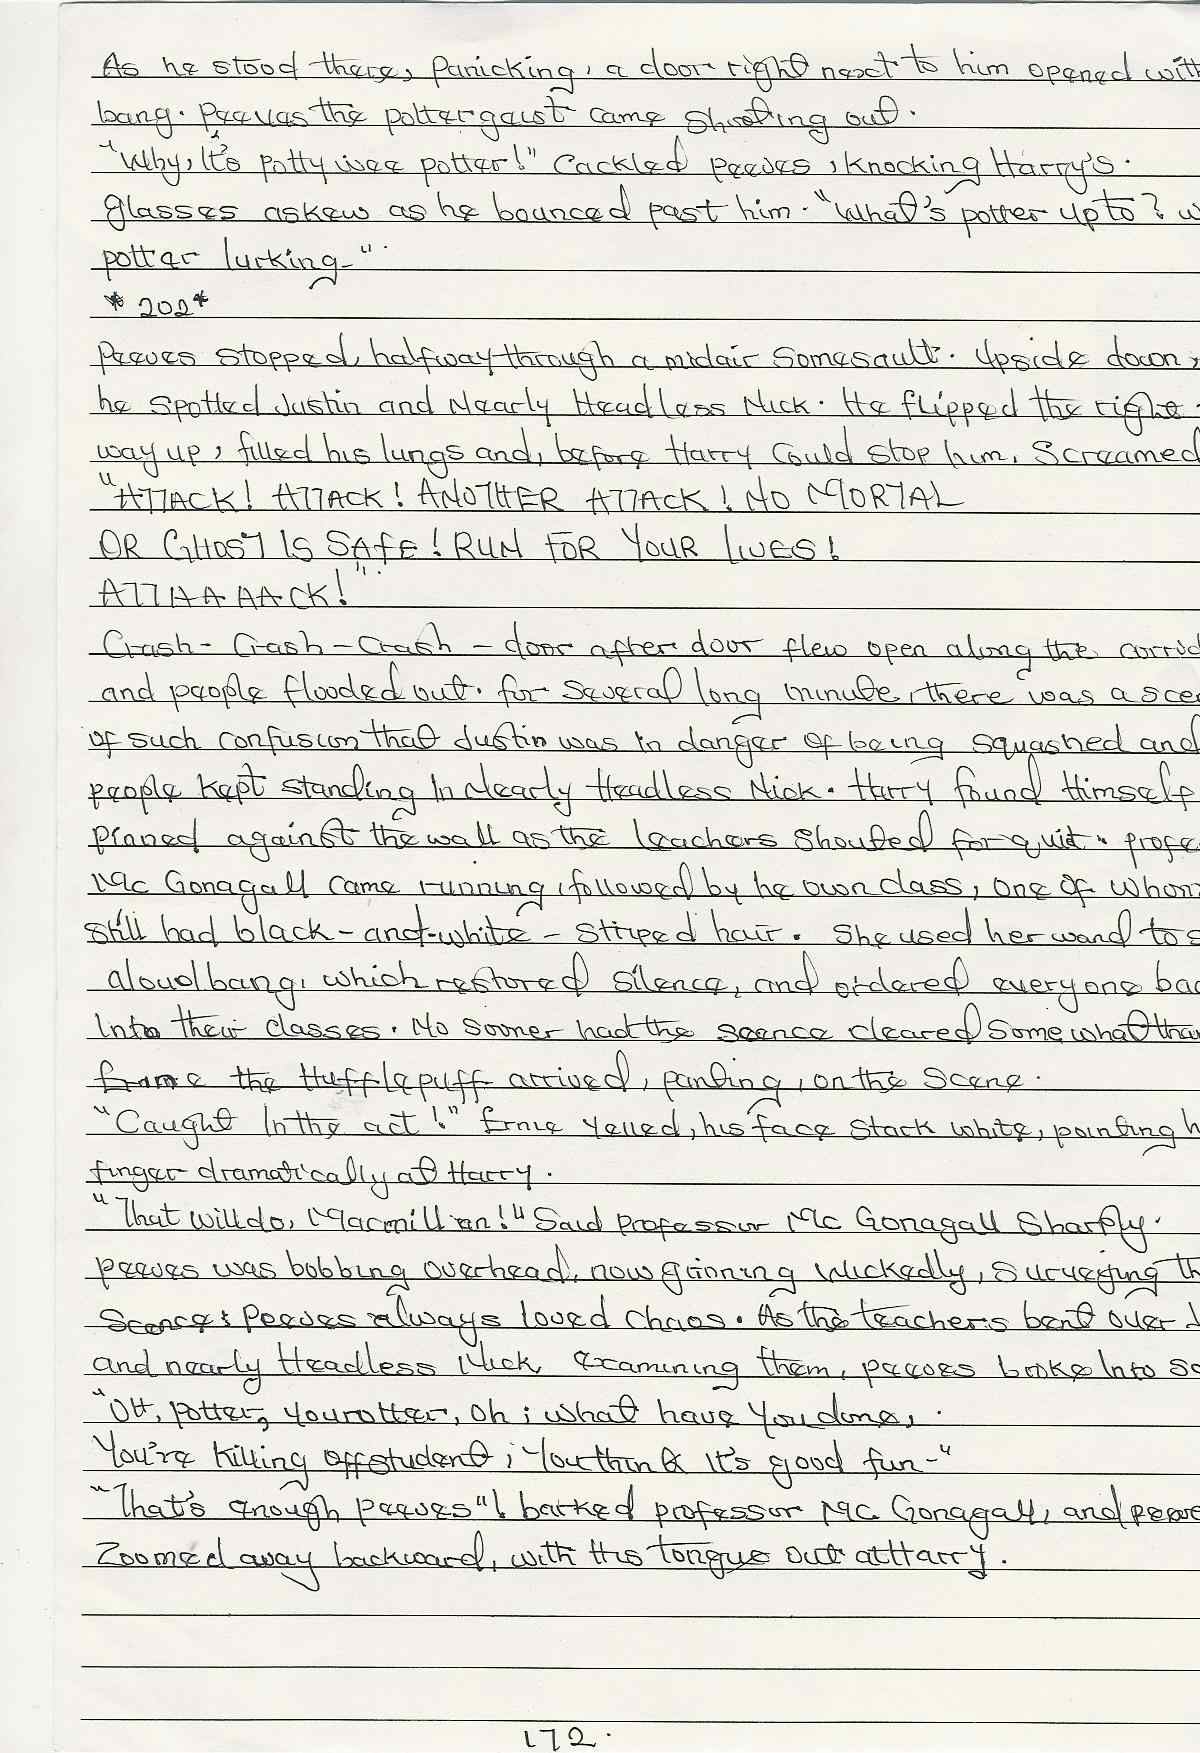 As he stood there, Panicking, a door right next to him opened with
bang. Peeves the poltergeist came shooting out.
"Why, It's potty wee potter!" Cackled Peeves, Knocking Harry's.
glasses askew as he bounced past him. "What's potter up to? w
potter lurking-"
*202*
Peeves stopped, halfway through a midair Somesault. Upside down,
he spotted Justin and Nearly Headless Nick. He flipped the right
way up, filled his lungs and, before Harry Could stop him, Screamed
"ATTACK! ATTACK! ANOTHER ATTACK! NO MORTAL
OR GHOST IS SAFE! RUN FOR YOUR LIVES!
ATTAAAACK!"
Crash- Crash-Crash - door after door flew open along the corrid
and people flooded out. for several long minute, there was a sce
of such confusion that Justin was in danger of being squashed and
people kept standing In Nearly Headless Nick. Harry found Himself
pinned against the wall as the teachers shouted for quit. profe
Mc Gonagall came running, followed by he own class, one of whom
still had black-and-white-striped hair. She used her wand to s
aloud bang, which restored silence, and ordered everyone bac
Into their classes. No sooner had the scence cleared Some what than
Ernie the Hufflepuff arrived, panting, on the Scene.
"Caught In the act!" Ernie Yelled, his face stark white, pointing h
finger dramatically at Harry.
"That will do, Macmillian!" Said Professor Mc Gonagall Sharply.
peeves was bobbing overhead, now grinning wickedly, surveying th
Scence; Peeves always loved chaos. As the teachers bent over J
and nearly Headless Nick, examining them, peeves broke Into so
"OH, potter, you rotter, oh; what have You done,
You're killing off student; You think It's good fun-"
"That's enough peeves"! barked professor Mc Gonagall, and peeve
Zoomed away backward, with his tongue out at Harry.
172.